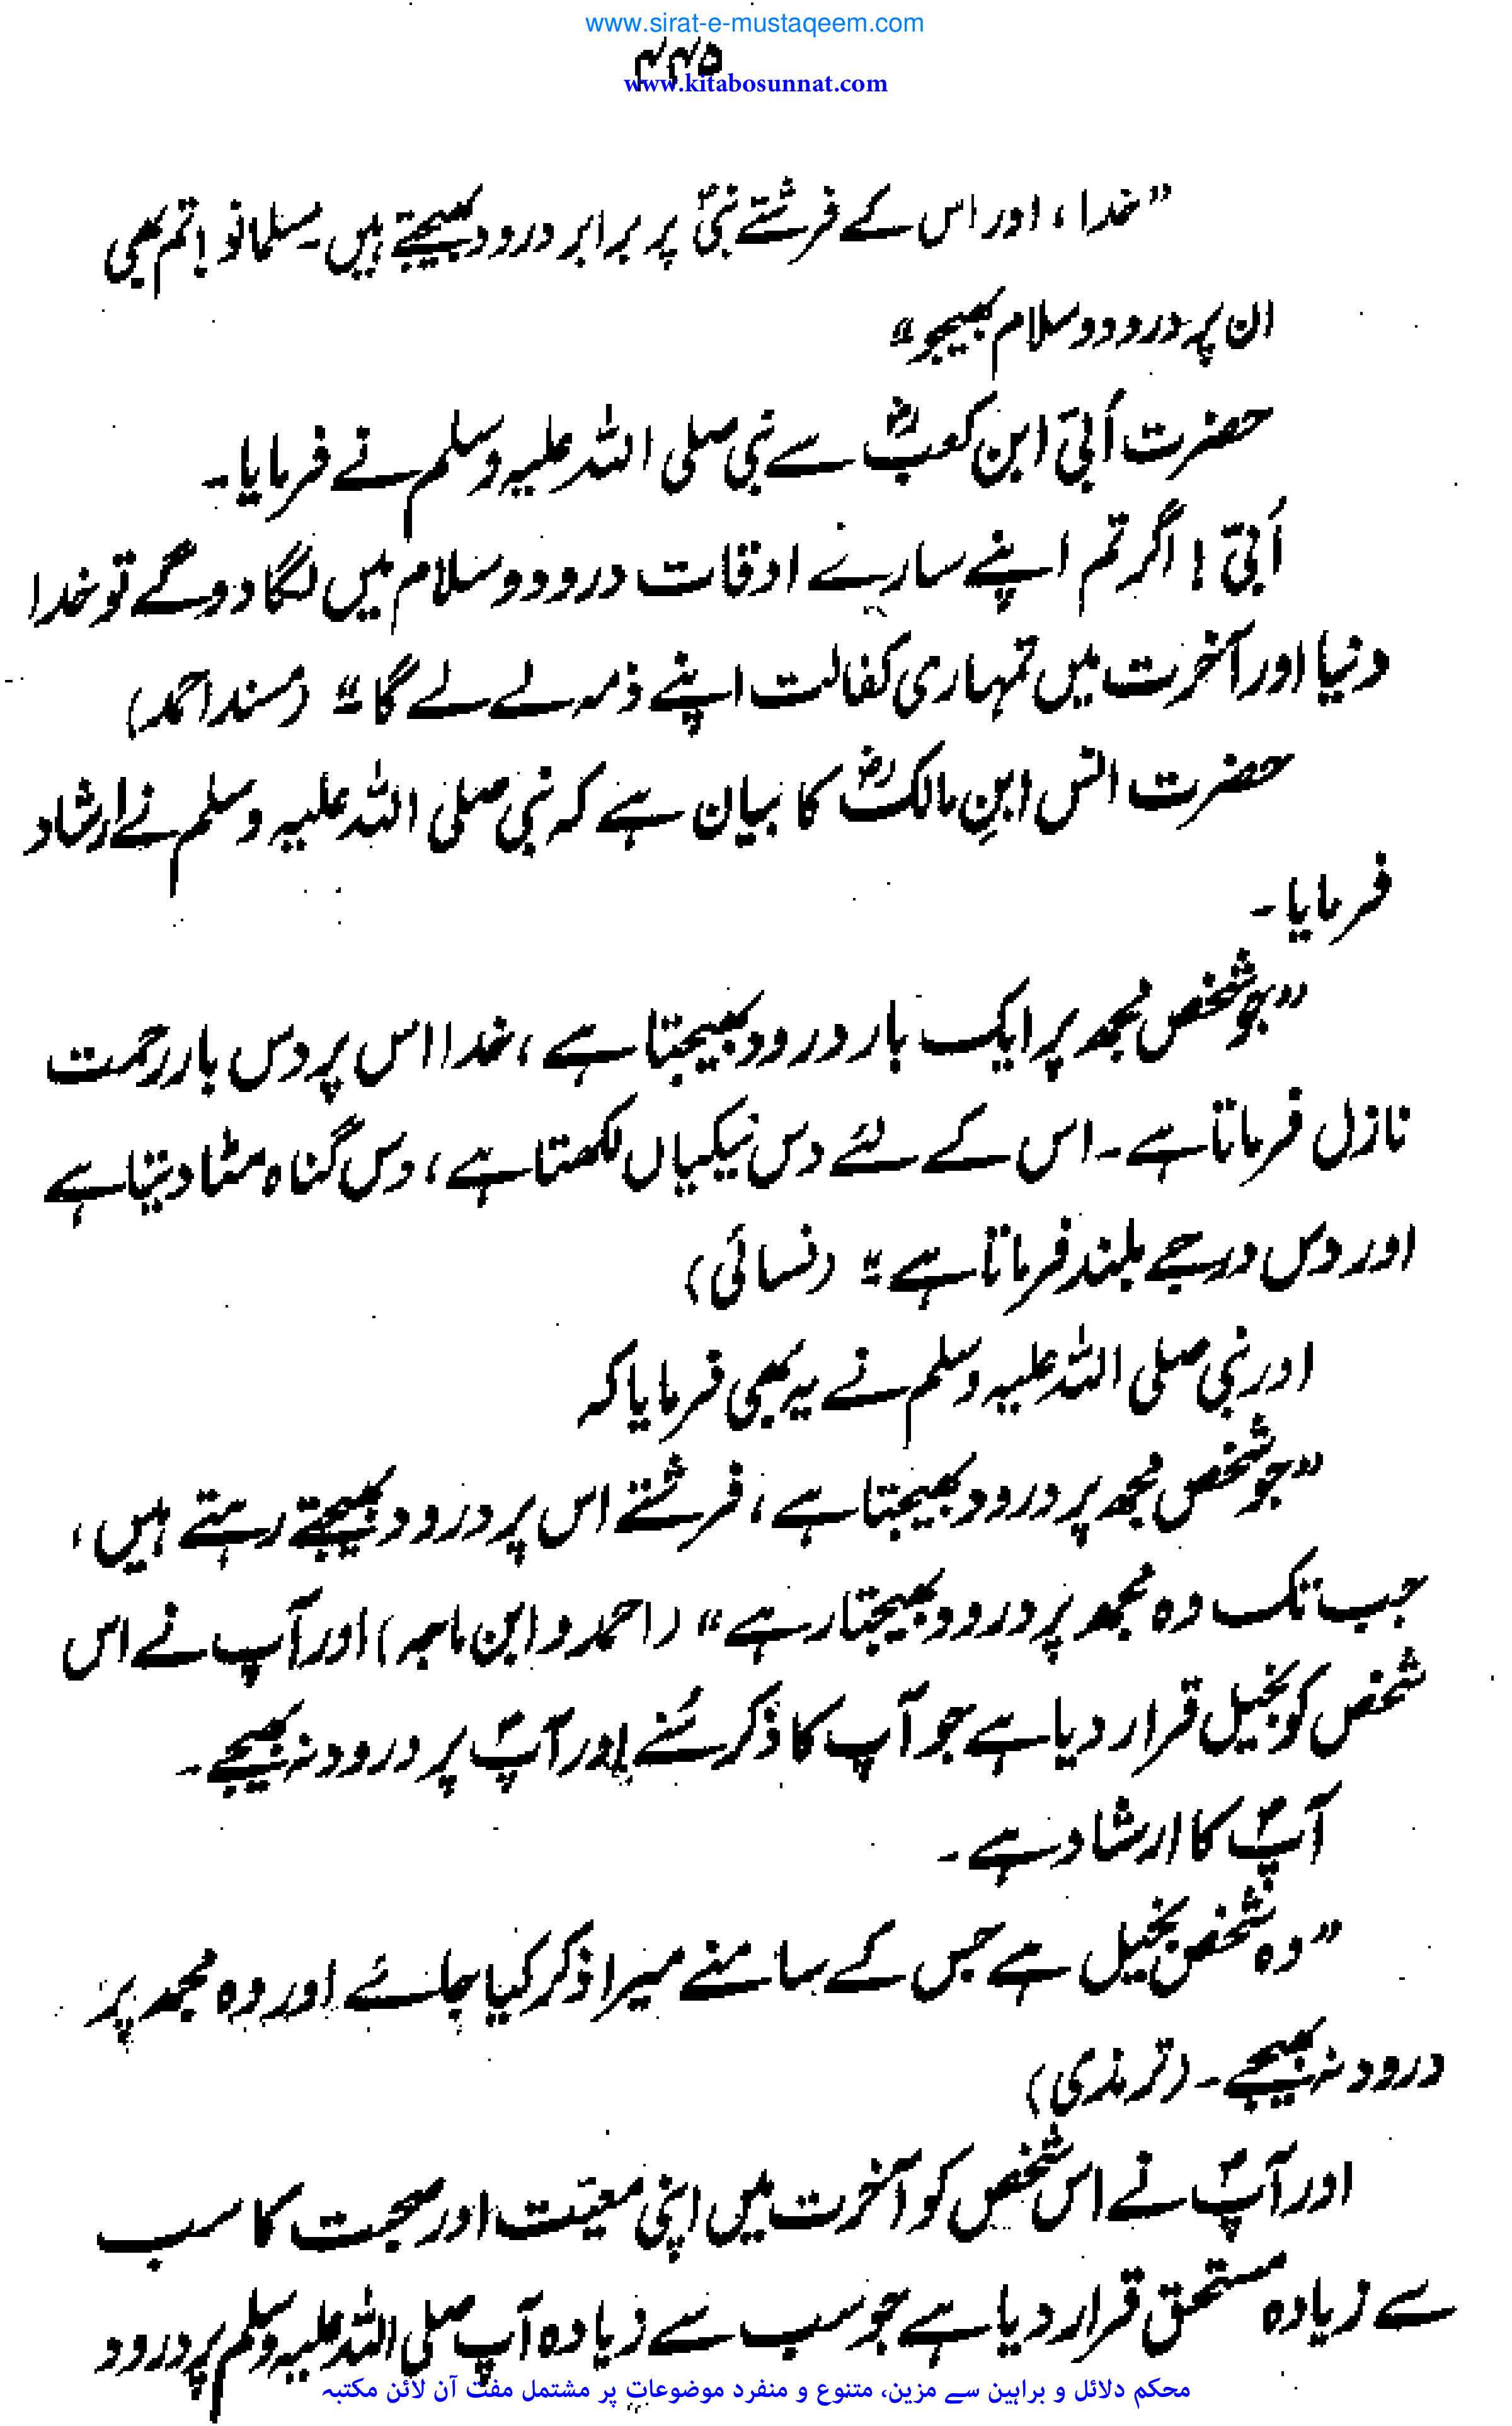 www.sirat-e-mustaqeem.com
۴۴۵
www.kitabosunnat.com
”خدا، اور اس کے فرشتے نبیؐ پر برابر درود بھیجتے ہیں۔ مسلمانو! تم بھی
ان پر درود و سلام بھیجو“
حضرت اُبَیّ ابن کعبؓ سے نبی صلی اللہ علیہ وسلم نے فرمایا۔
اُبَیّ! اگر تم اپنے سارے اوقات درود و سلام میں لگا دو گے تو خدا
دنیا اور آخرت میں تمہاری کفالت اپنے ذمہ لے لے گا“ (مسند احمد)
حضرت انس ابنِ مالکؓ کا بیان ہے کہ نبی صلی اللہ علیہ وسلم نے ارشاد
فرمایا۔
”جو شخص مجھ پر ایک بار درود بھیجتا ہے، خدا اس پر دس بار رحمت
نازل فرماتا ہے۔ اس کے لئے دس نیکیاں لکھتا ہے، دس گناہ مٹا دیتا ہے
اور دس درجے بلند فرماتا ہے“ (نسائی)
اور نبی صلی اللہ علیہ وسلم نے یہ بھی فرمایا کہ
”جو شخص مجھ پر درود بھیجتا ہے، فرشتے اس پر درود بھیجتے رہتے ہیں،
جب تک وہ مجھ پر درود بھیجتا رہے“ (احمد و ابن ماجہ) اور آپ نے اس
شخص کو بخیل قرار دیا ہے جو آپ کا ذکر سُنے اور آپؐ پر درود نہ بھیجے۔
آپؐ کا ارشاد ہے۔
”وہ شخص بخیل ہے جس کے سامنے میرا ذکر کیا جائے اور وہ مجھ پر
درود نہ بھیجے۔ (ترمذی)
اور آپؐ نے اس شخص کو آخرت میں اپنی معیّت اور صحبت کا سب
سے زیادہ مستحق قرار دیا ہے جو سب سے زیادہ آپ صلی اللہ علیہ وسلم پر درود
محکم دلائل و براہین سے مزین، متنوع و منفرد موضوعات پر مشتمل مفت آن لائن مکتبہ